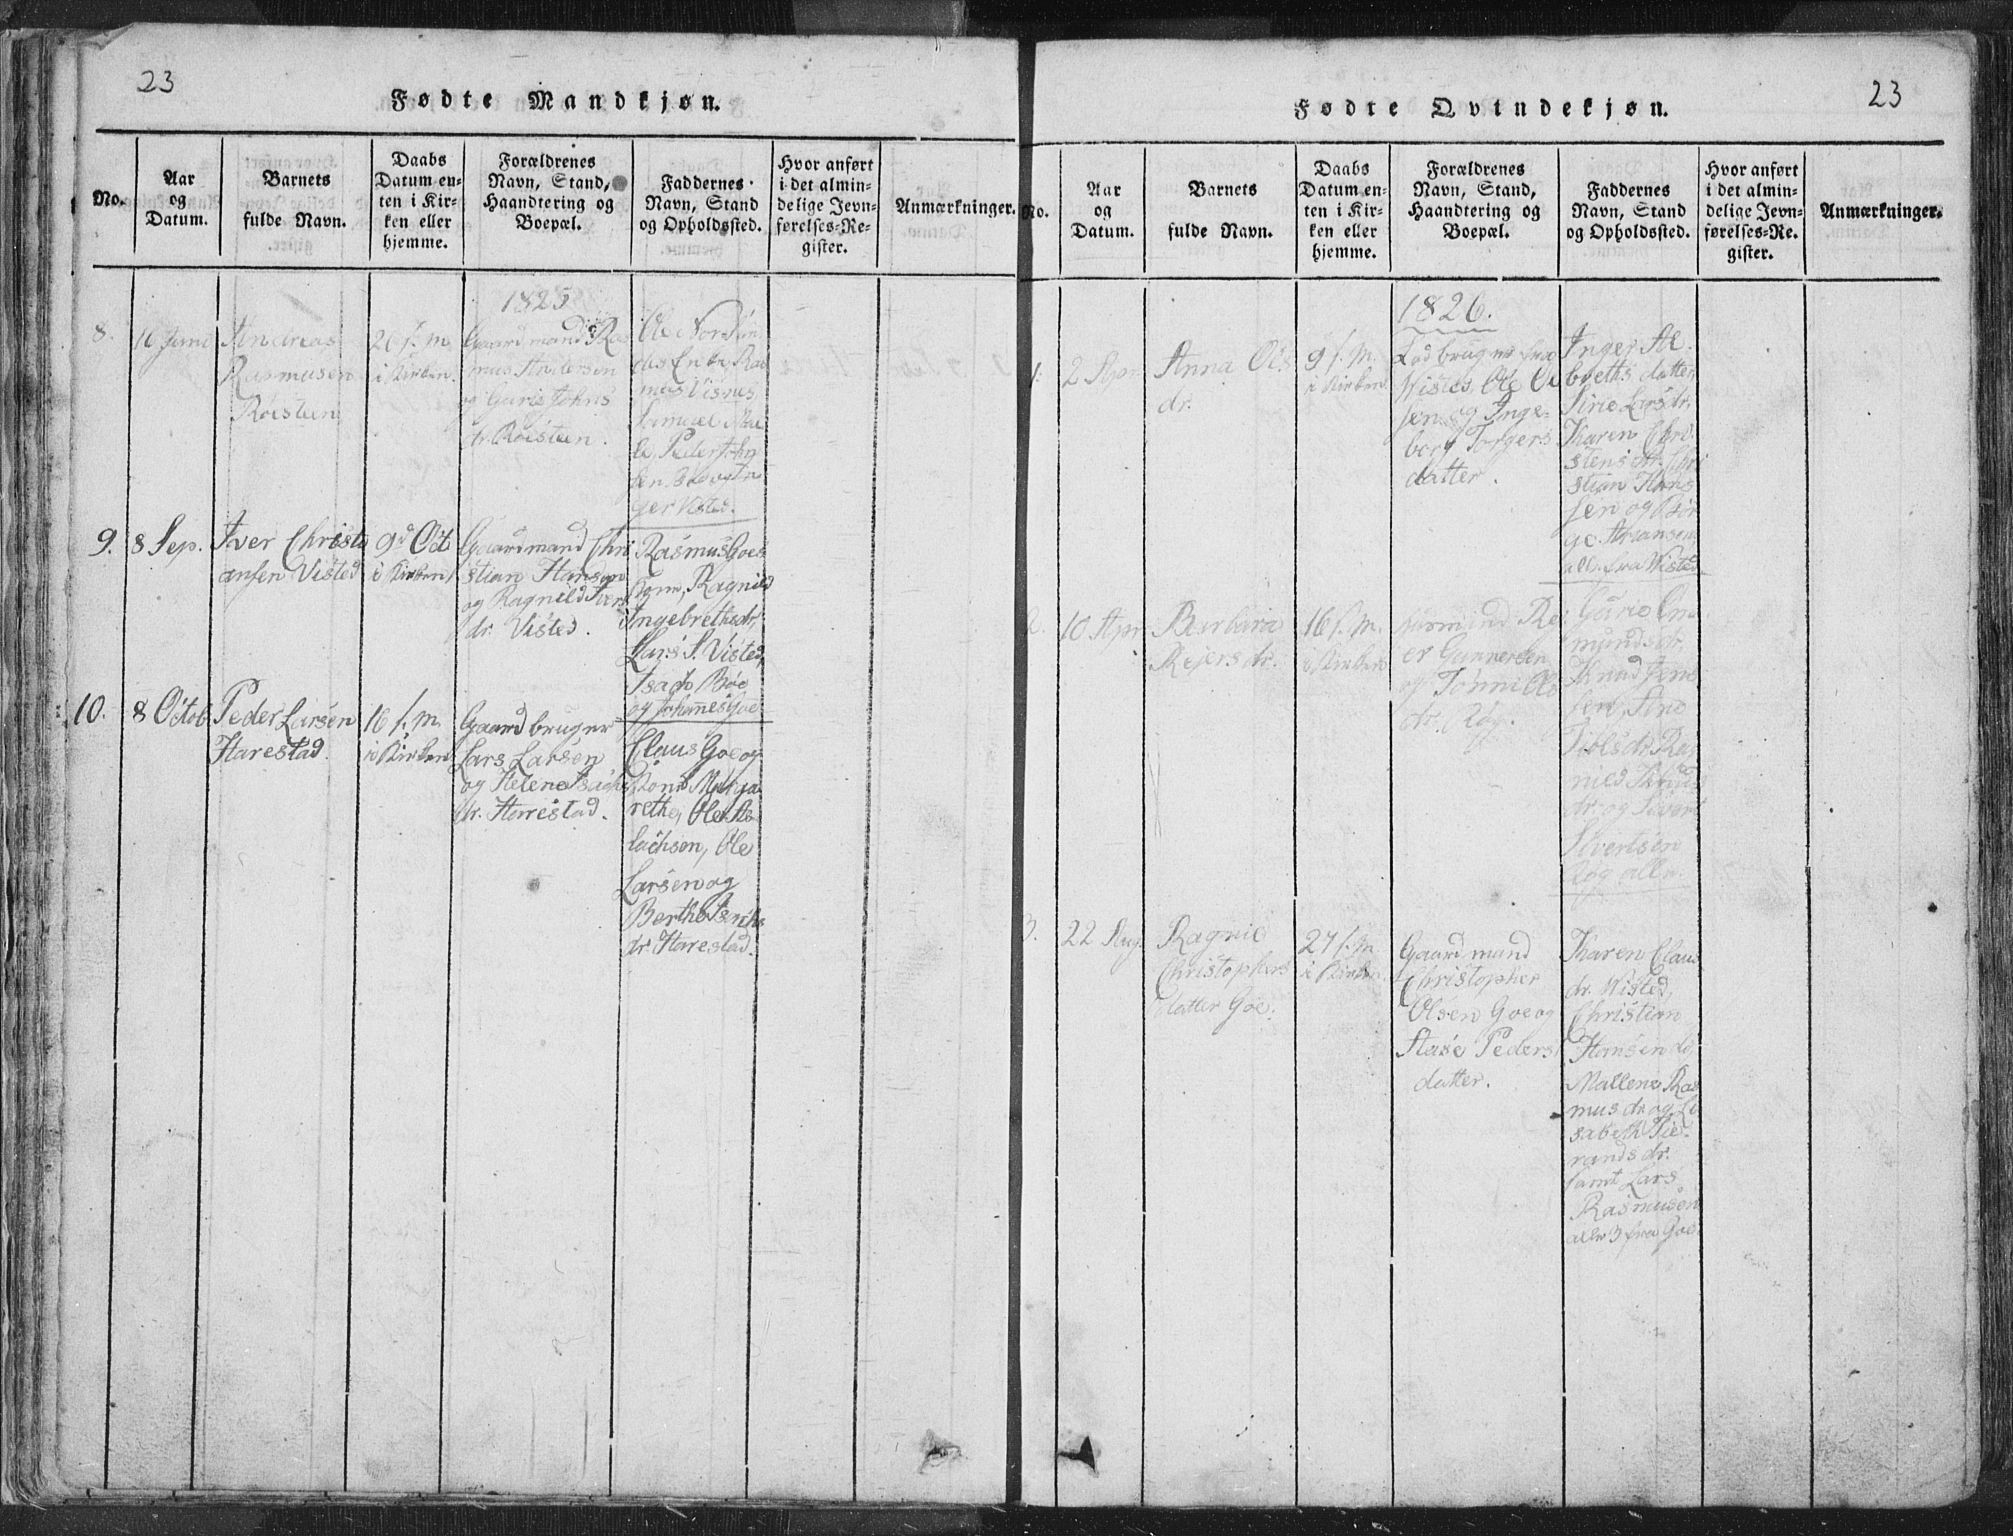 23
Fødte Mandkjøn.
No.
Aar
og
Datum.
Barnets
fulde Navn.
Daabs
Datum en-
ten i Kir-
ken eller
hjemme.
Forældrenes
Navn, Stand,
Haandtering og
Boepæl.
Faddernes
Navn, Stand
og Opholdssted.
Hvor anført
i det almin-
delige Jevn-
førelses-Re-
gister.
Anmærkninger.
1825
8.
16 Juni
Andreas
Rasmusen
Roisteen
26 s. m.
i Kirken.
Gaardmand Ras
mus Andersen
og Gurie Johns
dr. Roisteen.
Ole
mus Visnes,
Samuel
Peder John
sen
Visted.
9.
8 Sep.
Iver Christi
ansen Visted
9d Octo
i Kirken
Gaardmand Chri
stian Hansen
og Ragnild Ivers
dr. Visted.
Rasmus Goes
Ragnild
Ingebrethsdr,
Lars S. Visted,
Isach Böe
og Johannes Goe
10.
8 Octob
Peder Larsen
Harestad.
16 s. m.
i Kirken
Gaardbruger
Lars Larsen
og Helene Isachs
dr. Harrestad.
Claus Goe og
Kone Marga
rethe, Ole As
lachsen, Ole
Larsen og
Berthe
dr. Harestad.
23
Fødte Qvindekjøn.
No.
Aar
og
Datum.
Barnets
fulde Navn.
Daabs
Datum en-
ten i Kir-
ken eller
hjemme.
Forældrenes
Navn, Stand,
Haandtering og
Boepæl.
Faddernes
Navn, Stand
og Opholdssted.
Hvor anført
i det almin-
delige Jevn-
førelses-Re-
gister.
Anmærkninger.
1826.
1.
2 Apr
Anna Ols
dr.
9 s. m.
i Kirken
Wisted, Ole Ol
sen og Inge-
borg Torgers
datter.
Inger
datter,
Sirie Larsdr,
Karen Chri
stensdr. Chri
stian Hans
sen og Bör
ge Adriansen
all. fra Wisted
2.
10 Apr
Barbara
Rejersdr.
16 s. m.
i Kirken
Rei
er Gunnersen
og
dr. Røg.
Gurie Om
mundsdr,
Knud Jens
sen,
dr. og Sivert
Sivertsen
Røg alle.
3.
22 Aug.
Ragnild
Christophers
datter Goe.
27 s. m
i Kirken
Gaardmand
Christopher
Olsen Goe og
Stase Peders
datter.
Karen Claus
dr. Wisted,
Christian
Hansen do,
Mallene Ras
musdr. og Li
sabeth
dr.
samt Lars
Rasmusen
alle 3 fra Goe